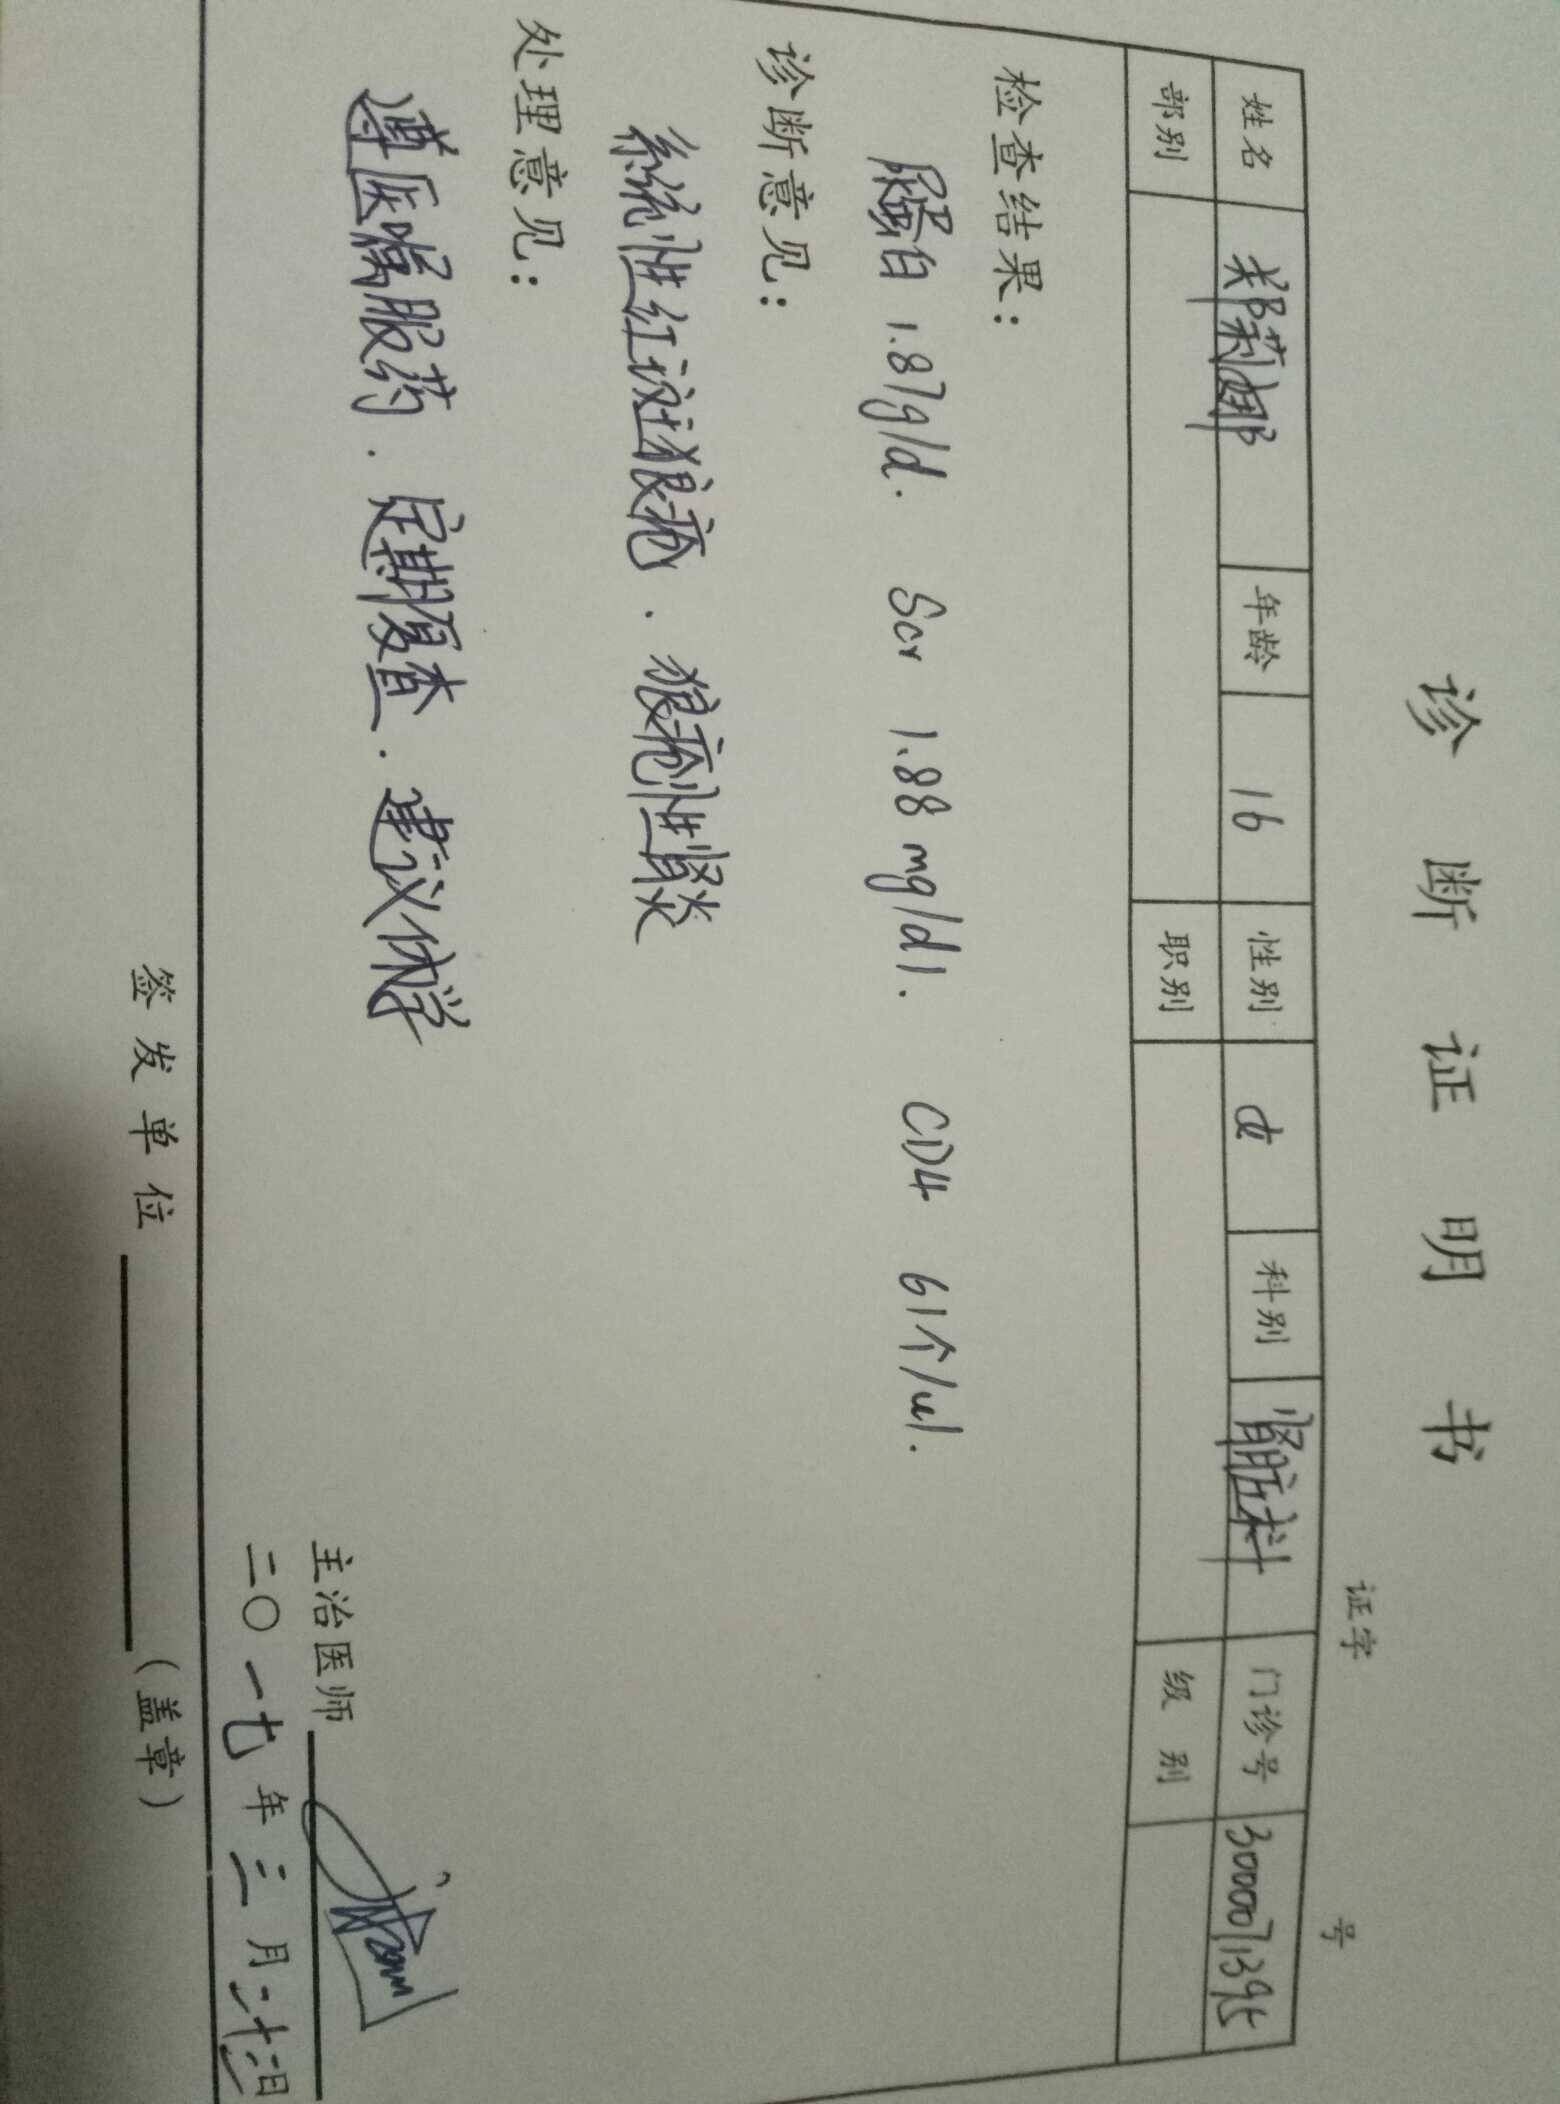 诊断证明书
证字 号
姓名 郑莉娜 年龄 16 性别 女 科别 肾脏科 门诊号 3000071395
部别 职别 级别
检查结果:
尿蛋白 1.87g/d. Scr 1.88mg/dl. CD4 61个/ul.
诊断意见:
系统性红斑狼疮. 狼疮性肾炎
处理意见:
遵医嘱服药. 定期复查. 建议休学
主治医师
二〇一七年三月二十二日
签发单位 (盖章)